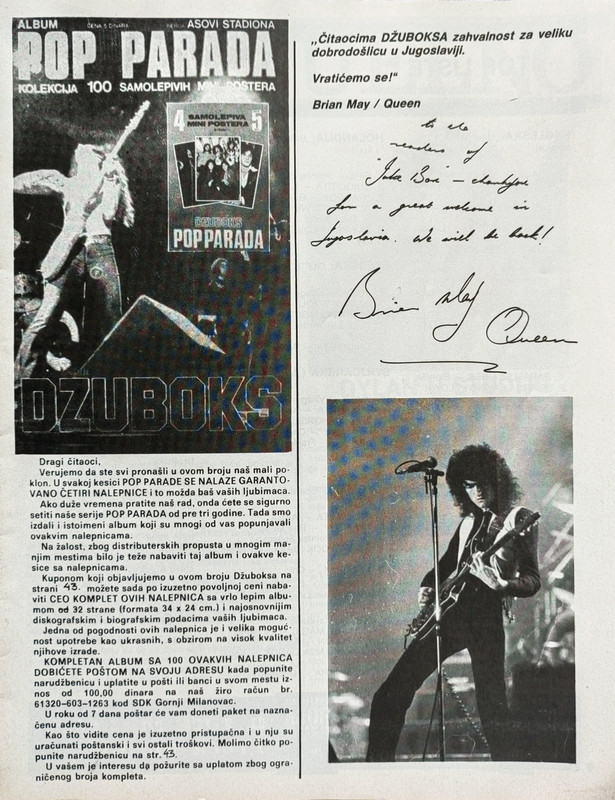 ALBUM CENA 5 DINARA ASOVI STADIONA
POP PARADA
KOLEKCIJA 100 SAMOLEPIVIH MINI POSTERA
4 SAMOLEPIVA 5
MINI POSTERA
DŽUBOKS
POP PARADA
DŽUBOKS
Dragi čitaoci,
Verujemo da ste svi pronašli u ovom broju naš mali po-
klon. U svakoj kesici POP PARADE SE NALAZE GARANTO-
VANO ČETIRI NALEPNICE i to možda baš vaših ljubimaca.
Ako duže vremena pratite naš rad, onda ćete se sigurno
setiti naše serije POP PARADA od pre tri godine. Tada smo
izdali i istoimeni album koji su mnogi od vas popunjavali
ovakvim nalepnicama.
Na žalost, zbog distributerskih propusta u mnogim ma-
njim mestima bilo je teže nabaviti taj album i ovakve ke-
sice sa nalepnicama.
Kuponom koji objavljujemo u ovom broju Džuboksa na
strani 43. možete sada po izuzetno povoljnoj ceni naba-
viti CEO KOMPLET OVIH NALEPNICA sa vrlo lepim albu-
mom od 32 strane (formata 34 x 24 cm.) i najosnovnijim
diskografskim i biografskim podacima vaših ljubimaca.
Jedna od pogodnosti ovih nalepnica je i velika moguć-
nost upotrebe kao ukrasnih, s obzirom na visok kvalitet
njihove izrade.
KOMPLETAN ALBUM SA 100 OVAKVIH NALEPNICA
DOBIĆETE POŠTOM NA SVOJU ADRESU kada popunite
narudžbenicu i uplatite u pošti ili banci u svom mestu iz-
nos od 100,00 dinara na naš žiro račun br.
61320-603-1263 kod SDK Gornji Milanovac.
U roku od 7 dana poštar će vam doneti paket na nazna-
čenu adresu.
Kao što vidite cena je izuzetno pristupačna i u nju su
uračunati poštanski i svi ostali troškovi. Molimo čitko po-
punite narudžbenicu na str. 43.
U vašem je interesu da požurite sa uplatom zbog ogra-
ničenog broja kompleta.
„Čitaocima DŽUBOKSA zahvalnost za veliku
dobrodošlicu u Jugoslaviji.
Vratićemo se!“
Brian May / Queen
to the
readers of
Juke Box - thankyou
for a great welcome in
Jugoslavia. We will be back!
Brian May
Queen